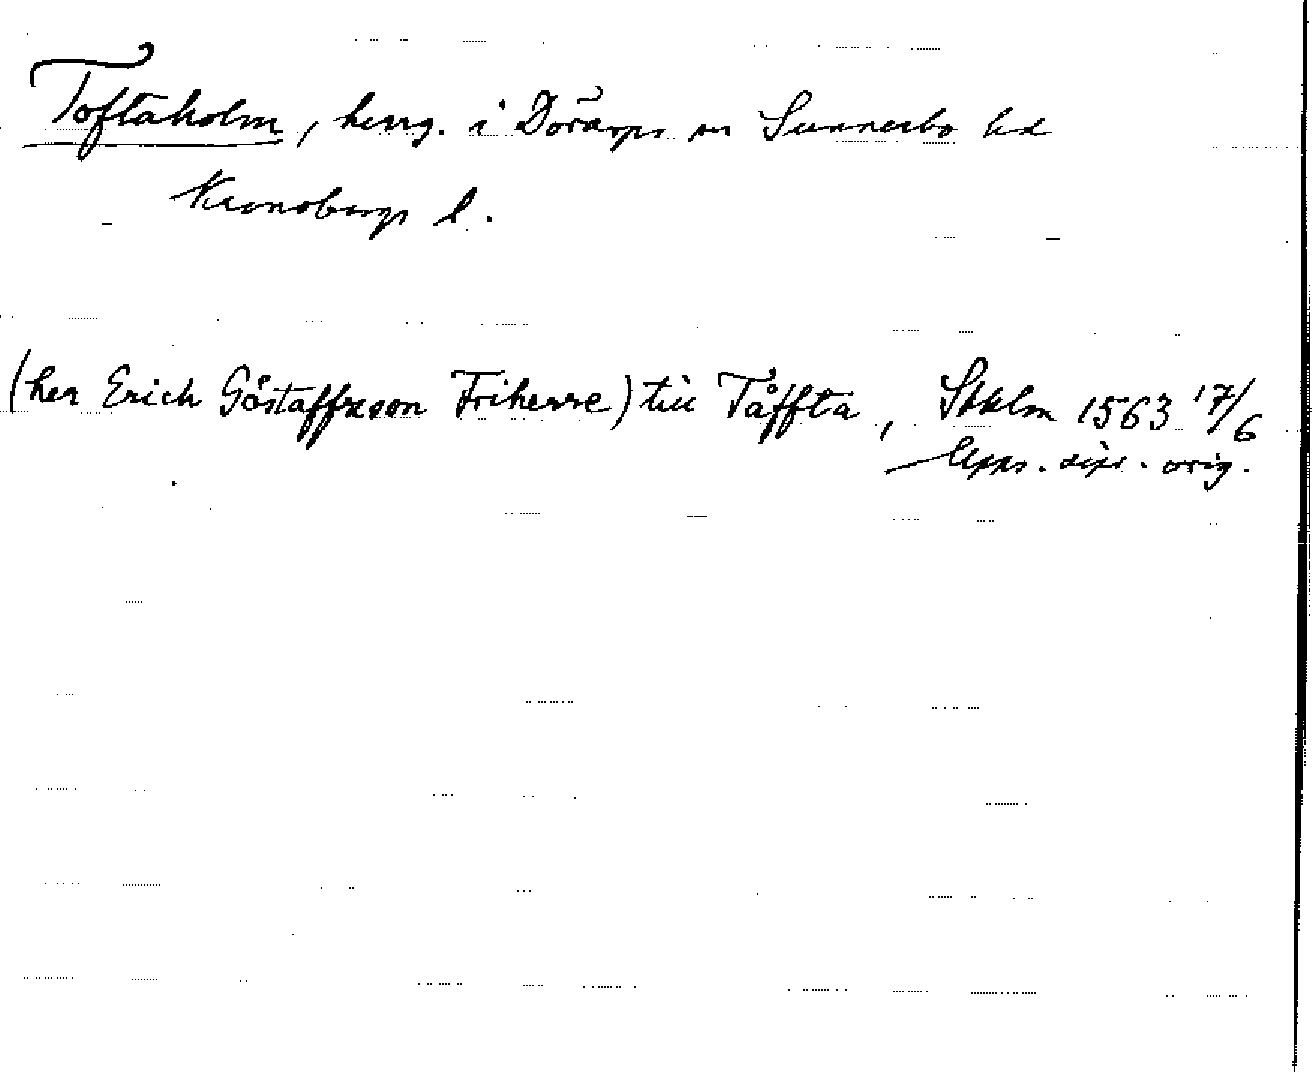 Toftaholm, herrg. i Dörarps sn Sunnerbo hd
Kronobergs l.
(her Erich Göstaffxson Friherre) till Tåffta, Sthlm 1563 17/6
Upps. dipl. orig.